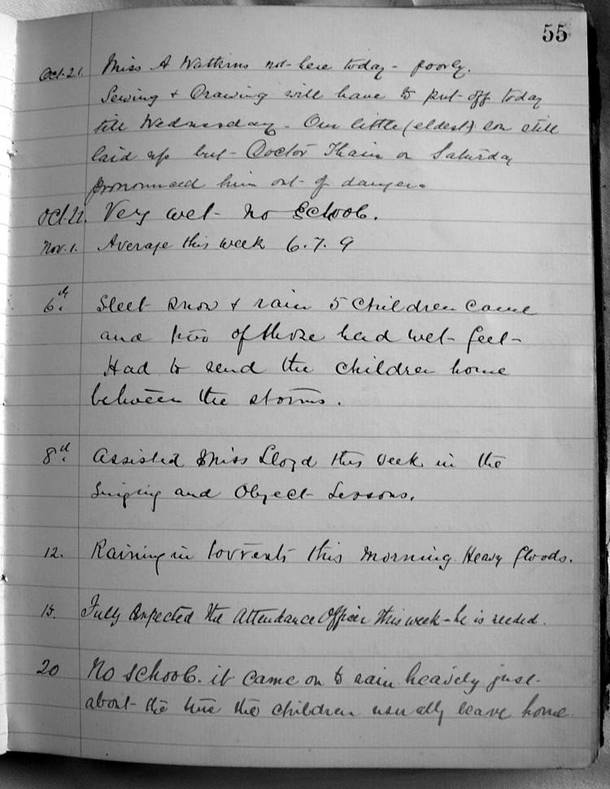 55
Oct. 21. Miss A Watkins not here today - poorly.
Sewing & Drawing will have to put off today
till Wednesday - Our little (eldest) son still
laid up but - Doctor Thain on Saturday
pronounced him out of danger.
Oct 22. Very wet - no School.
Nov. 1. Average this week 6.7.9
6th. Sleet snow & rain 5 children came
and two of those had wet feet -
Had to send the children home
between the storms.
8th. Assisted Miss Lloyd this week in the
Singing and Object Lessons.
12. Raining in torrents this morning. Heavy floods.
15. Fully Expected the Attendance Officer this week - he is needed.
20 No school. it came on to rain heavily just
about the time the children usually leave home